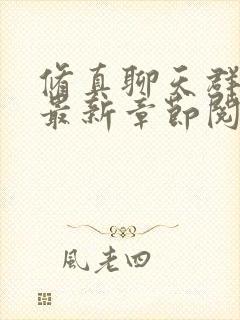 修真聊天群
最新章節閱
風老四